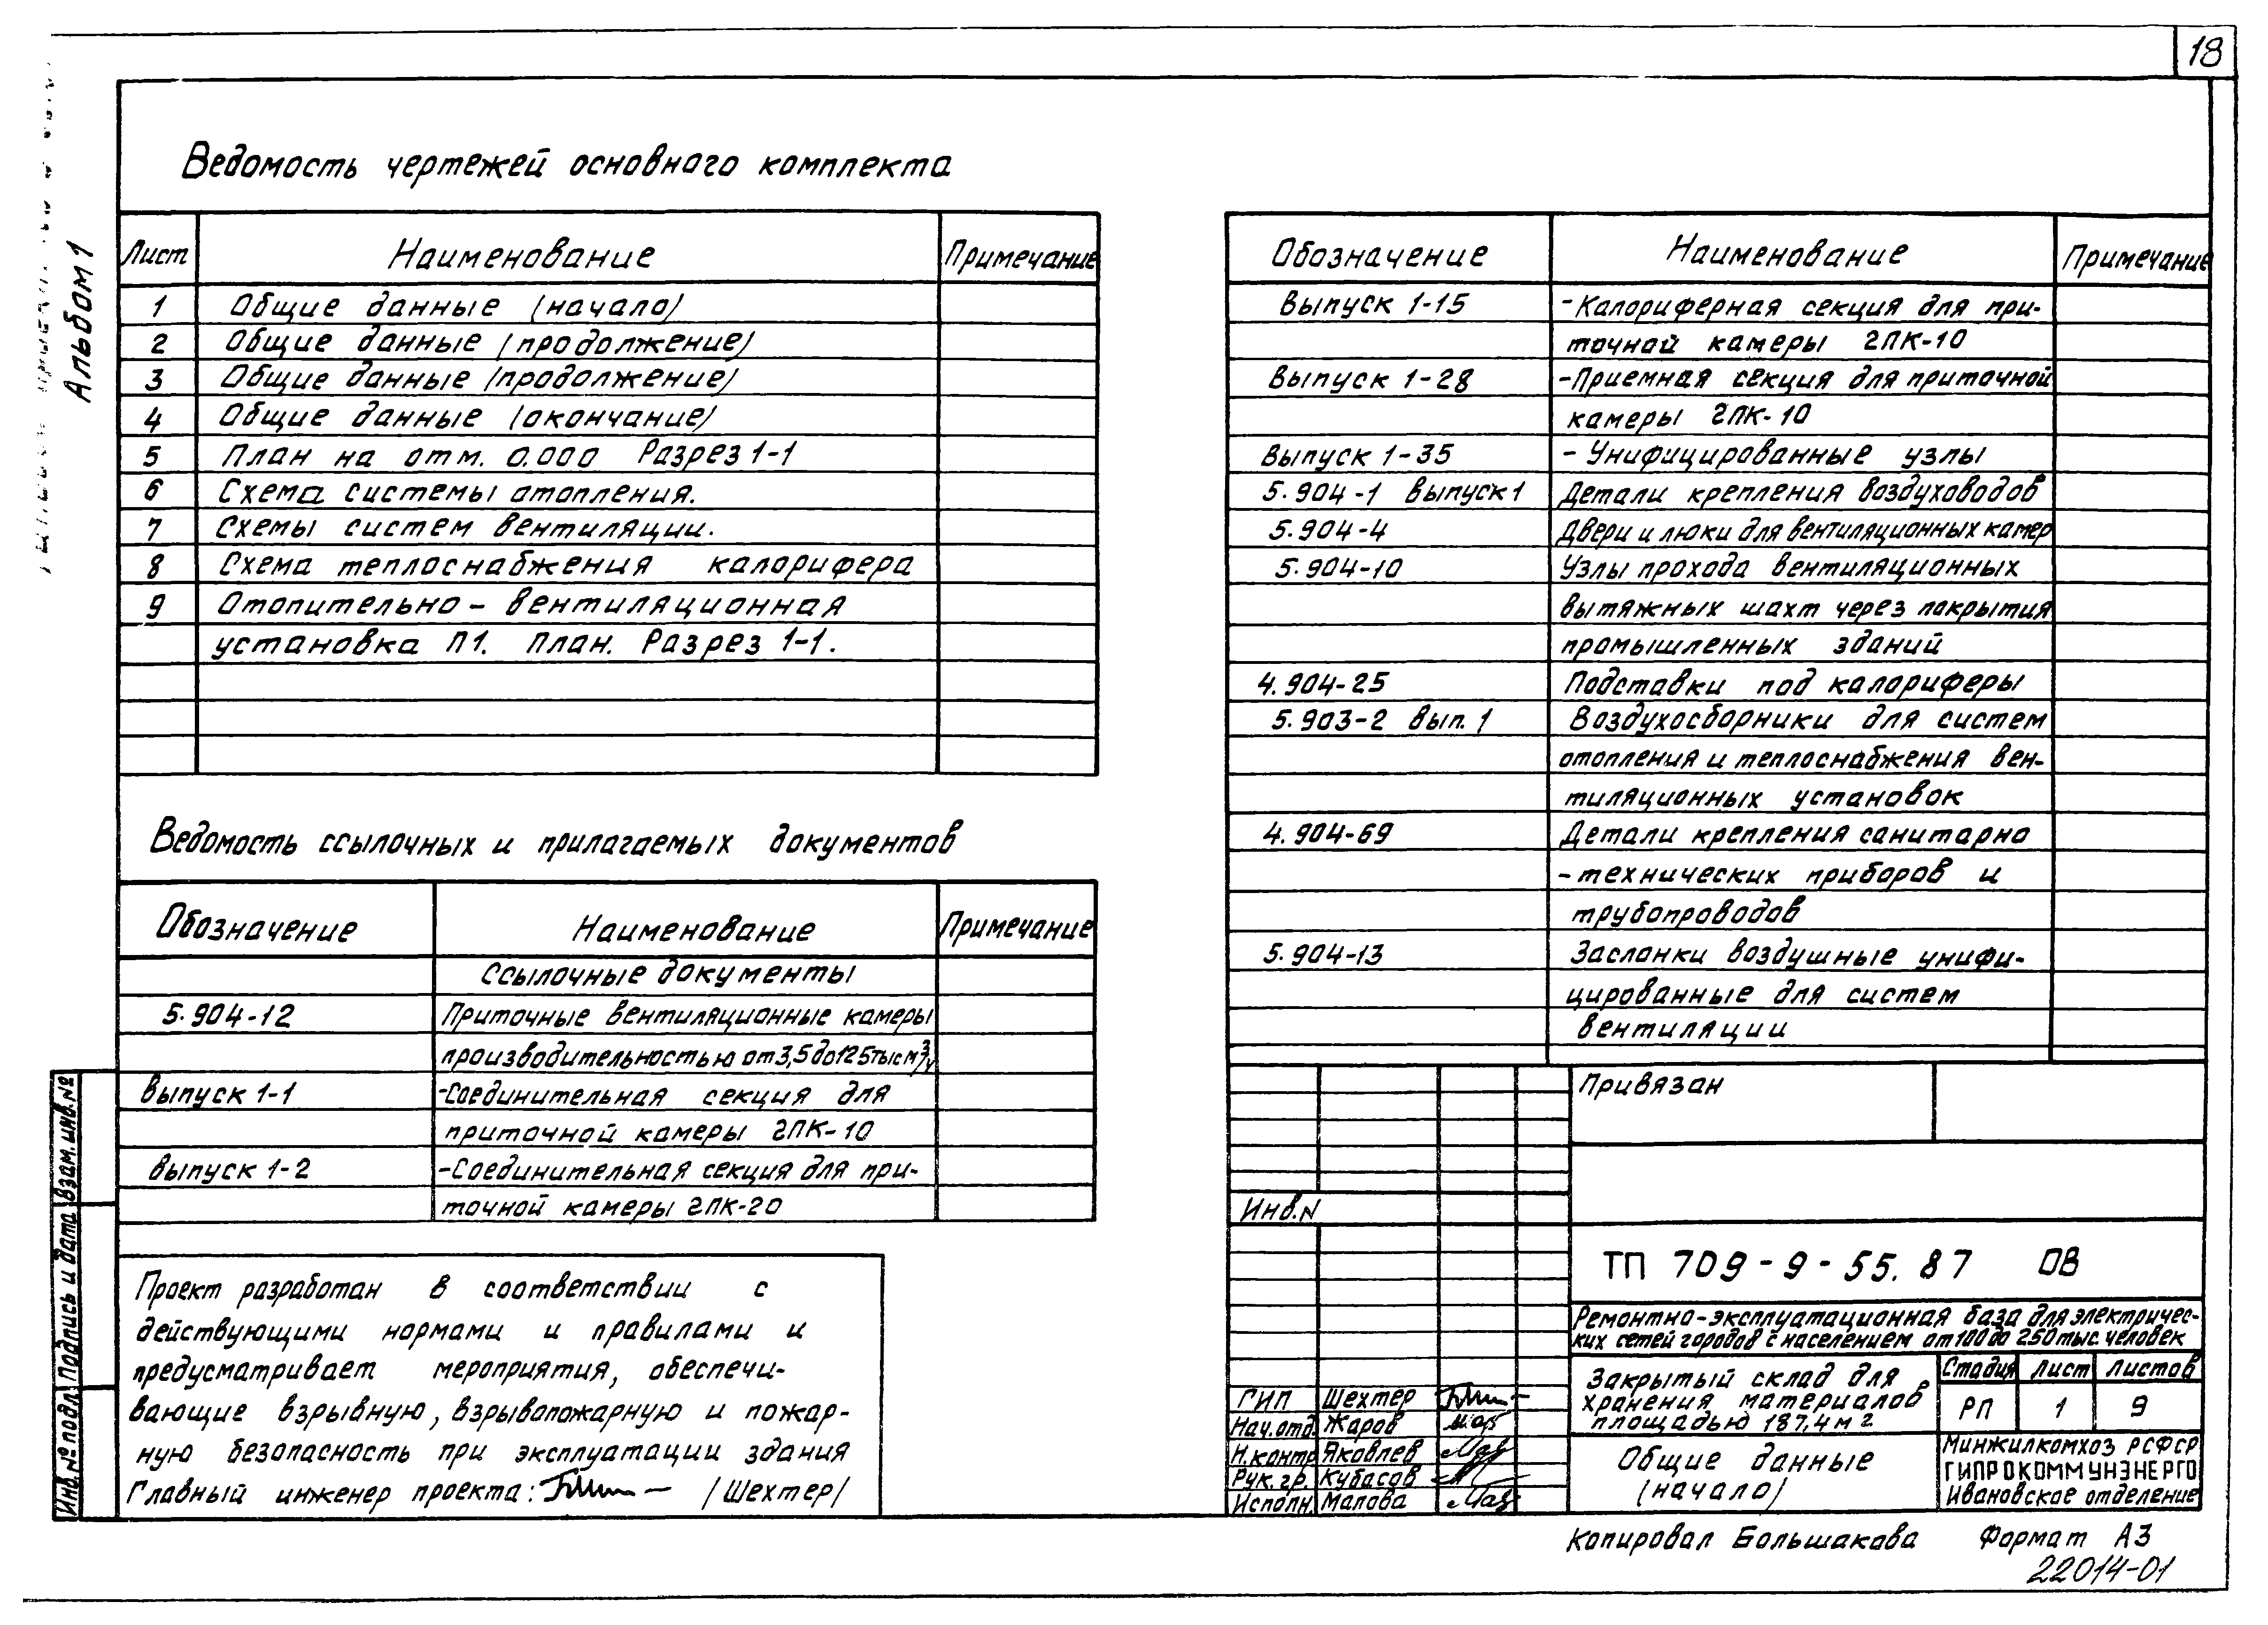 18
Альбом 1
Ведомость чертежей основного комплекта
Лист Наименование Примечание
1 Общие данные (начало)
2 Общие данные (продолжение)
3 Общие данные (продолжение)
4 Общие данные (окончание)
5 План на отм. 0.000 Разрез 1-1
6 Схема системы отопления.
7 Схемы систем вентиляции.
8 Схема теплоснабжения калорифера
9 Отопительно-вентиляционная
установка П1. План. Разрез 1-1.
Ведомость ссылочных и прилагаемых документов
Обозначение Наименование Примечание
Ссылочные документы
5.904-12 Приточные вентиляционные камеры
производительностью от 3,5 до 125 тыс м³/ч
Выпуск 1-1 -Соединительная секция для
приточной камеры 2ПК-10
Выпуск 1-2 -Соединительная секция для при-
точной камеры 2ПК-20
Проект разработан в соответствии с
действующими нормами и правилами и
предусматривает мероприятия, обеспечи-
вающие взрывную, взрывопожарную и пожар-
ную безопасность при эксплуатации здания
Главный инженер проекта: /Шехтер/
Обозначение Наименование Примечание
Выпуск 1-15 -Калориферная секция для при-
точной камеры 2ПК-10
Выпуск 1-28 -Приемная секция для приточной
камеры 2ПК-10
Выпуск 1-35 -Унифицированные узлы
5.904-1 выпуск 1 Детали крепления воздуховодов
5.904-4 Двери и люки для вентиляционных камер
5.904-10 Узлы прохода вентиляционных
вытяжных шахт через покрытия
промышленных зданий
4.904-25 Подставки под калориферы
5.903-2 вып. 1 Воздухосборники для систем
отопления и теплоснабжения вен-
тиляционных установок
4.904-69 Детали крепления санитарно
-технических приборов и
трубопроводов
5.904-13 Заслонки воздушные унифи-
цированные для систем
вентиляции
Привязан
Инв. N
ТП 709-9-55.87 ОВ
Ремонтно-эксплуатационная база для электричес-
ких сетей городов с населением от 100 до 250 тыс. человек
Закрытый склад для
хранения материалов
площадью 187,4 м2
Стадия Лист Листов
РП 1 9
ГИП Шехтер
Нач.отд. Жаров
Н.контр Яковлев
Рук. гр. Кубасов
Исполн. Малова
Общие данные
(начало)
Минжилкомхоз РСФСР
ГИПРОКОММУНЭНЕРГО
Ивановское отделение
Копировал Большакова Формат А3
22014-01
Инв. № подл. Подпись и дата Взам. инв. №